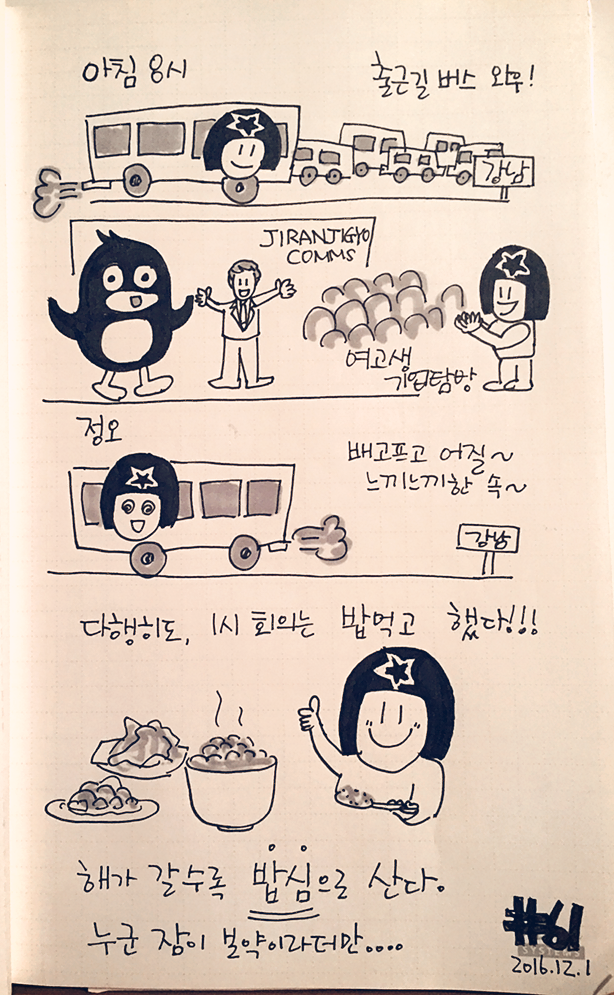 아침 8시
출근길 버스 와우!
강남
JIRANJIGYO
COMMS
여고생
기업탐방
정오
배고프고 어질~
느끼느끼한 속~
강남
다행히도, 1시 회의는 밥먹고 했다!!!
해가 갈수록 밥심으로 산다.
누군 잠이 보약이라더만....
#61
SYSTEMS
2016.12.1